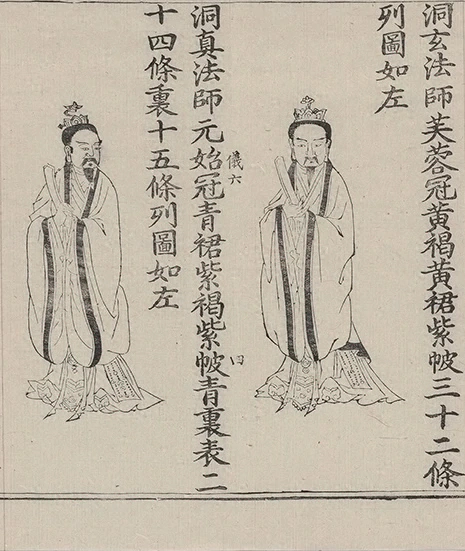 洞玄法師芙蓉冠黃褐黃裙紫帔三十二條
列圖如左
洞真法師元始冠青裙紫褐紫帔青裏表二
十四條裏十五條列圖如左
儀六
四